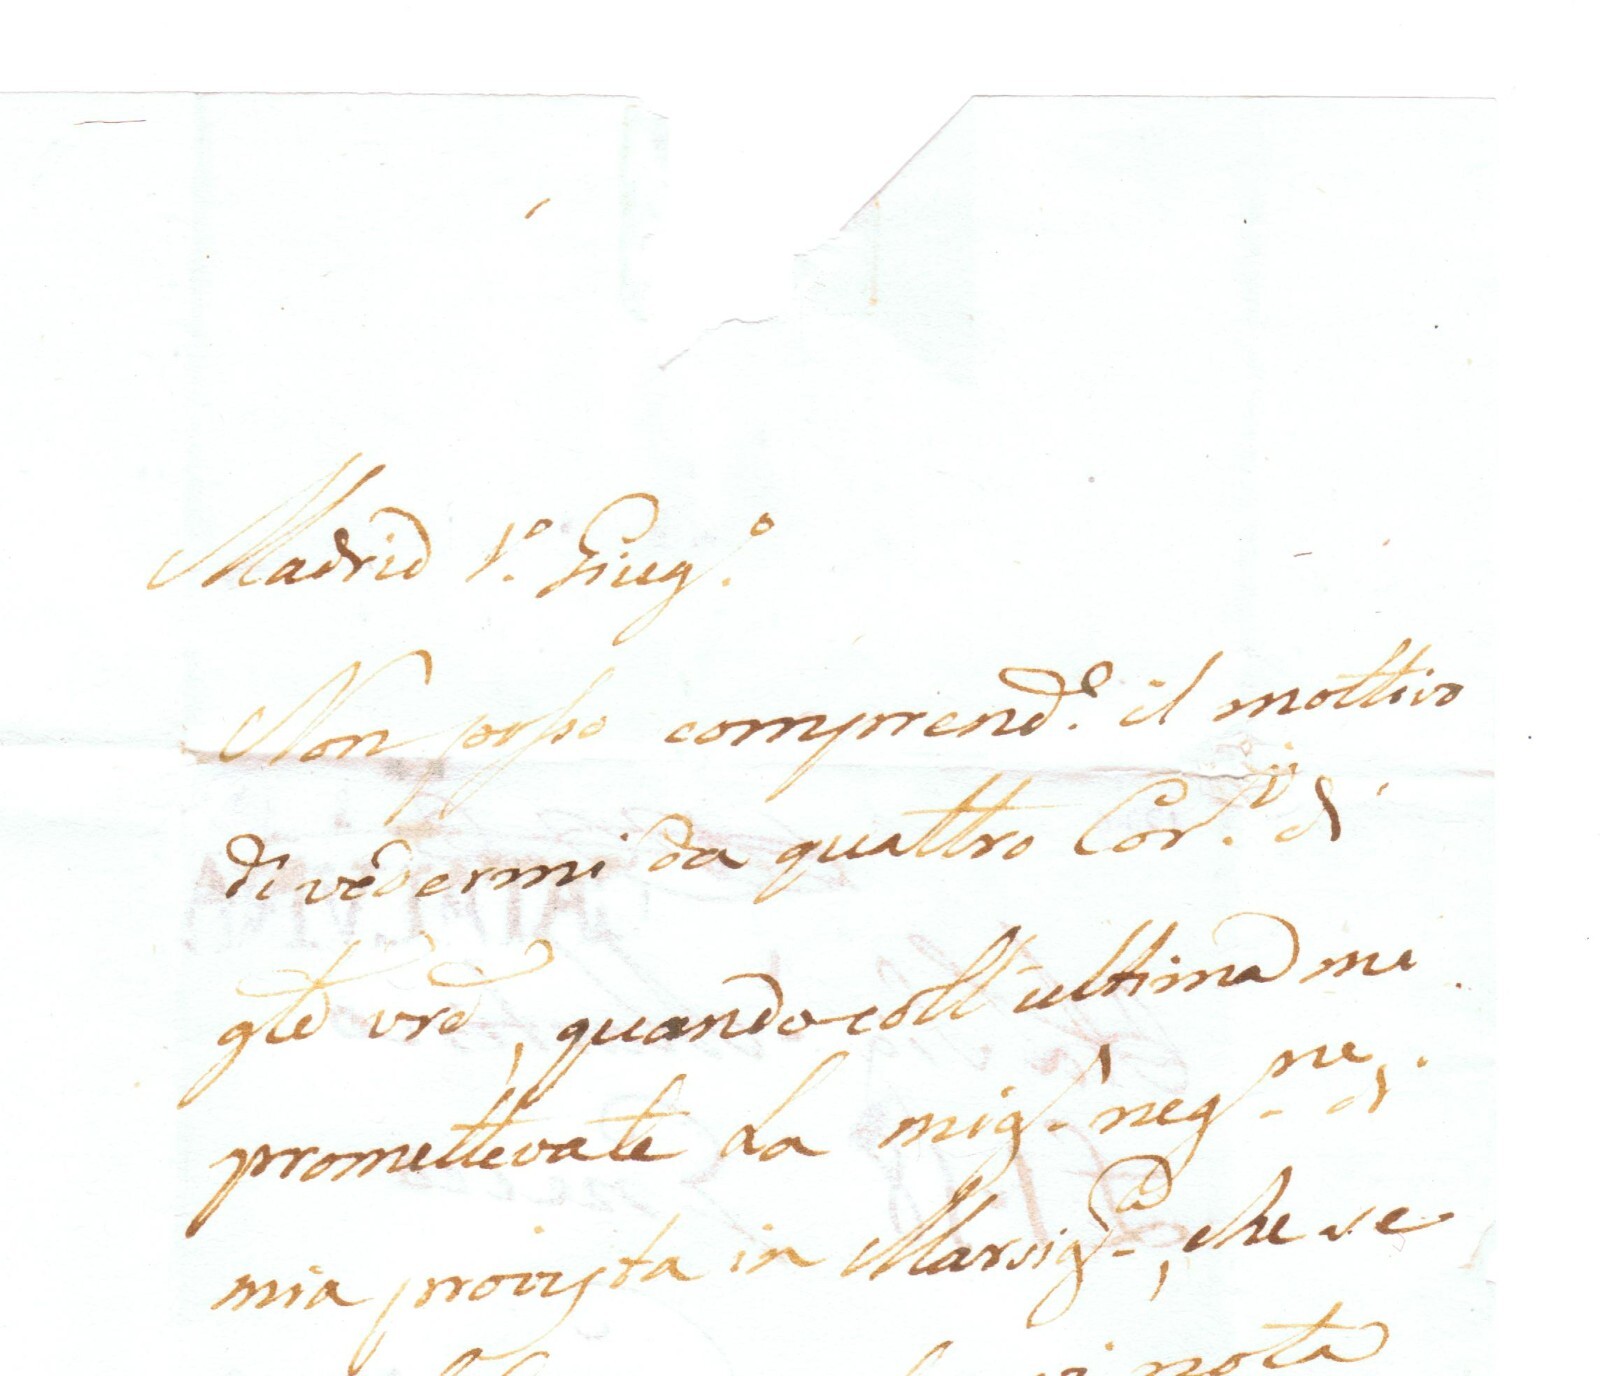 Madrid 1.º Giug.º
Non posso comprend.e il mottivo
di vedermi da quattro Cor.ri
quando coll' ultima mi
promettevate la mig.r neg.ne di
mia provista in Marsig.a, che se
nota